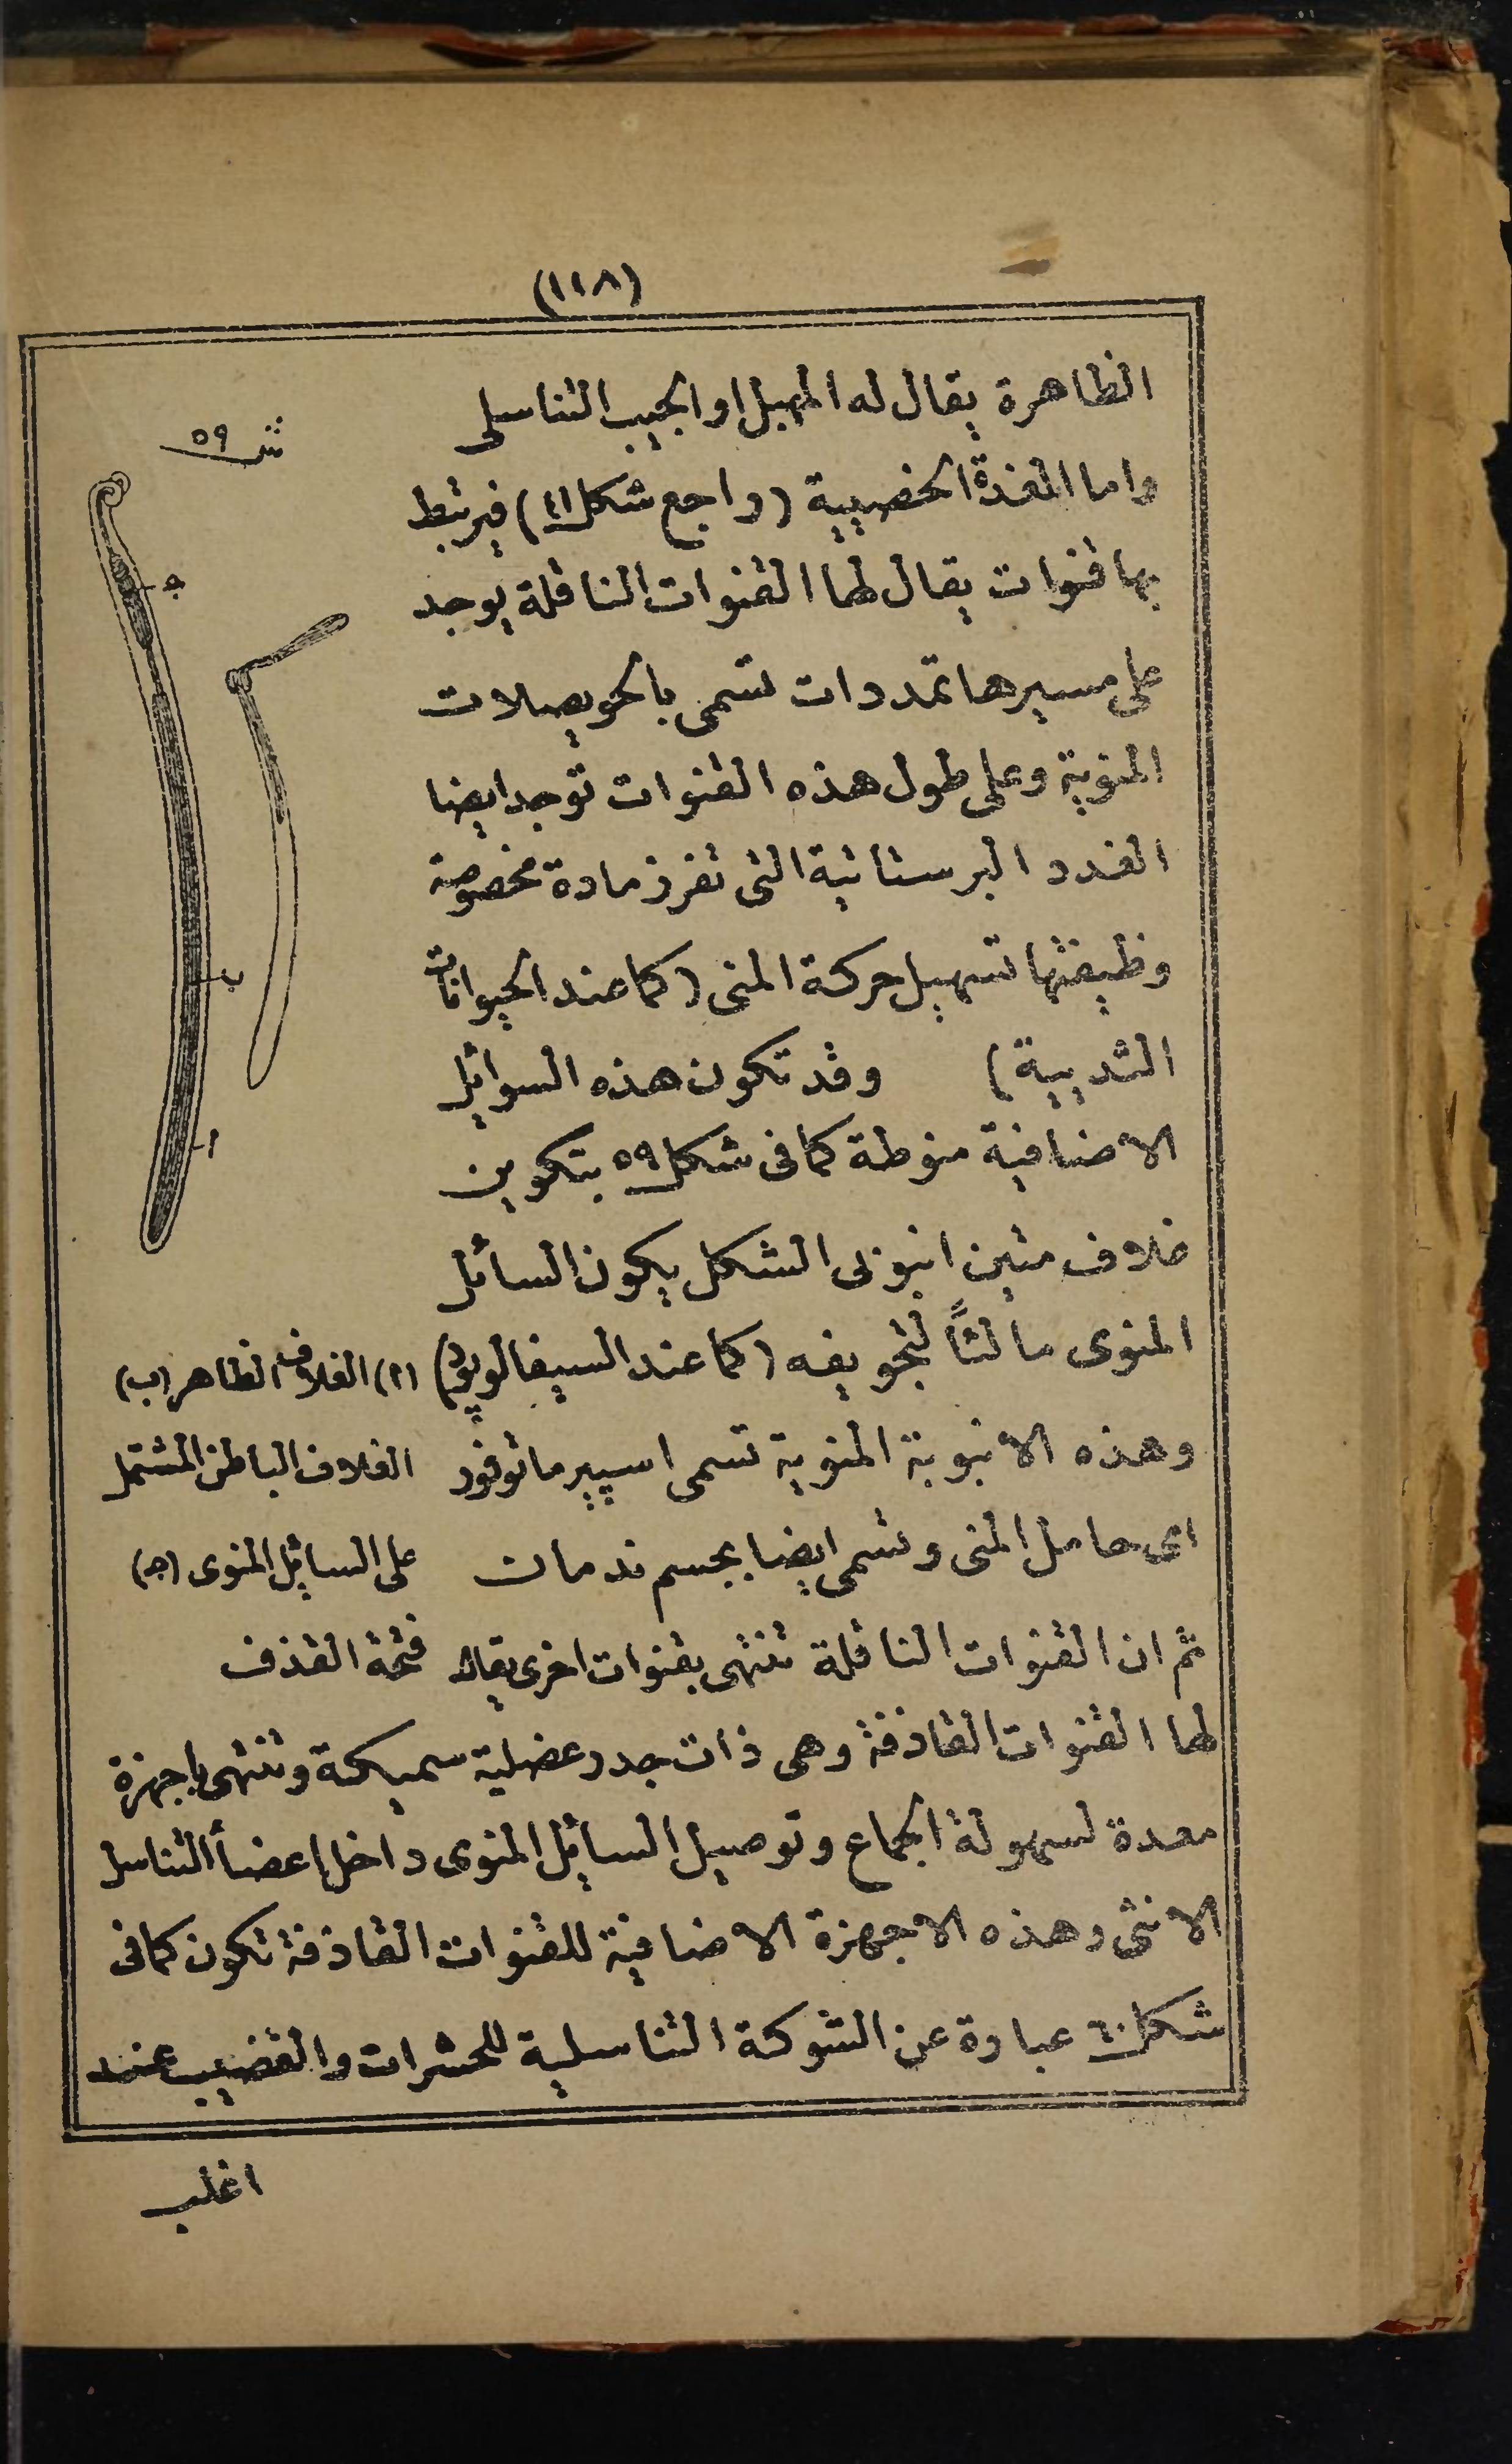 (١١٨)
الظاهرة يقال له المهبل او الجيب التناسلى
واما الغدة الخصيية (راجع شكل ٤١) فيرتبط
بها قنوات يقال لها القنوات الناقلة يوجد
على مسيرها تمددات تسمى بالحويصلات
المنوية وعلى طول هذه القنوات توجد ايضا
الغدد البرستاتية التى تفرز مادة مخصوصة
وظيفتها تسهيل حركة المنى (كما عند الحيوانات
الثديية) وقد تكون هذه السوائل
الاضافية منوطة كما فى شكل ٥٩ بتكوين
غلاف متين انبوبى الشكل يكون السائل
المنوى مالئاً لتجويفه (كما عند السيفالوپود)
وهذه الانبوبة المنوية تسمى اسپيرماتوفور
اى حامل المنى وتسمى ايضا بجسم ندمات
ثم ان القنوات الناقلة تنتهى بقنوات اخرى يقال
لها القنوات القاذفة وهى ذات جدر عضلية سميكة وتنتهى باجهزة
معدة لسهولة الجماع وتوصيل السائل المنوى داخل اعضاأ التناسل
الانثى وهذه الاجهزة الاضافية للقنوات القاذفة تكون كما فى
شكل ٦٠ عبارة عن الشوكة التناسلية للحشرات والقضيب عند
اغلب
ش ٥٩
ج
ب
ا
(ا) الغلاف الظاهر (ب)
الغلاف الباطن المشتمل
على السائل المنوى (ج)
فتحة القذف